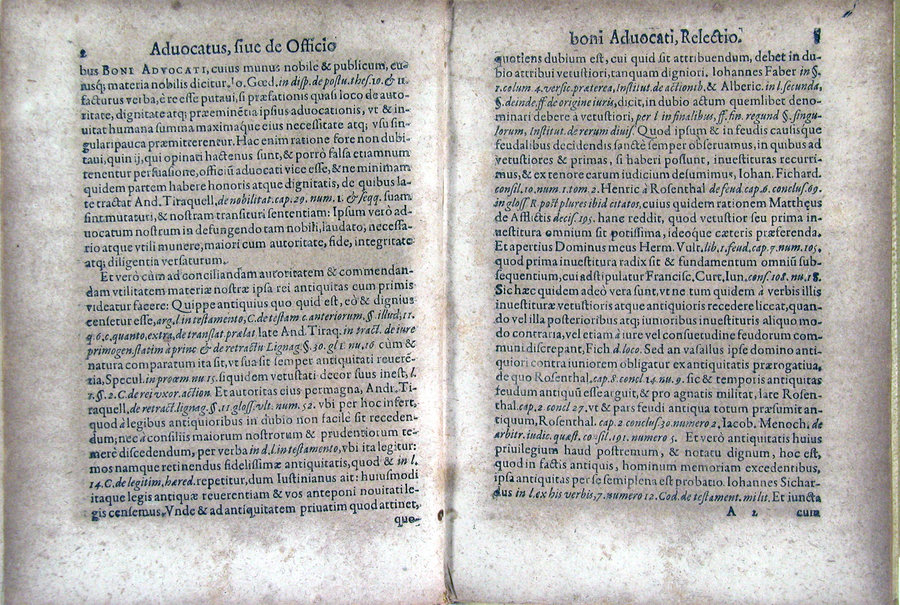 2
Aduocatus, siue de Officio
bus BONI ADVOCATI, cuius munus nobile & publicum, eu-
iusq; materia nobilis dicitur, Io. Gœd. in disp. de postu. thes. 10. & 11.
facturus verba, è re esse putaui, si præfationis quasi loco de auto-
ritate, dignitate atq; præeminētia ipsius aduocationis, vt & in-
uitat humana summa maximaque eius necessitate atq; vsu sin-
gulari pauca præmitterentur. Hac enim ratione fore non dubi-
taui, quin ij, qui opinati hactenus sunt, & porrò falsa etiamnum
tenentur persuasione, officiū aduocati vice esse, & ne minimam
quidem partem habere honoris atque dignitatis, de quibus la-
te tractat And. Tiraquell, de nobilitat. cap. 29. num. 1. & seqq. suam
sint mutaturi, & nostram transituri sententiam: Ipsum verò ad-
uocatum nostrum in defungendo tam nobili, laudato, necessa-
rio atque vtili munere, maiori cum autoritate, fide, integritate
atq; diligentia versaturum.
Et verò cùm ad conciliandam autoritatem & commendan-
dam vtilitatem materiæ nostræ ipsa rei antiquitas cum primis
videatur facere: Quippe antiquius quo quid est, eò & dignius
censetur esse, arg. l in testamento, C. de testam c. anteriorum. §. illud, 11.
q 6. c. quanto, extra, de translat prælat. late And. Tiraq. in tract. de iure
primogen. statim à princ & de retractu Lignag §. 30. gl 1. nu. 16 cùm &
natura comparatum ita sit, vt sua sit semper antiquitati reuerē-
tia, Specul. in proœm nu 15. siquidem vetustati decor suus inest, l.
1. §. 2. C. de rei vxor. action. Et autoritas eius permagna, And. Ti-
raquell, de retract. lignag. §. 11 gloss vlt. num. 52. vbi per hoc infert,
quod à legibus antiquioribus in dubio non facilè sit receden-
dum; nec à consiliis maiorum nostrorum & prudentiorum te-
merè discedendum, per verba in d. l. in testamento, vbi ita legitur:
mos namque retinendus fidelissimæ antiquitatis, quod & in l.
14. C. de legitim, hæred. repetitur, dum Iustinianus ait: huiusmodi
itaque legis antiquæ reuerentiam & vos anteponi nouitati le-
gis censemus. Vnde & ad antiquitatem priuatim quod attinet,
quo-
boni Aduocati, Relectio.
quotiens dubium est, cui quid sit attribuendum, debet in du-
bio attribui vetustiori, tanquam digniori. Iohannes Faber in §.
1. colum 4. versic. præterea, Institut. de actionib. & Alberic. in l. secunda,
§. deinde, ff. de origine iuris, dicit, in dubio actum quemlibet deno-
minari debere à vetustiori, per l in finalibus, ff. fin. regund §. singu-
lorum, institut. de rerum diuis. Quod ipsum & in feudis causisque
feudalibus decidendis sanctè semper obseruamus, in quibus ad
vetustiores & primas, si haberi possunt, inuestituras recurri-
mus, & ex tenore earum iudicium desumimus, Iohan. Fichard.
consil. 10. num 1. tom 2. Henric à Rosenthal de feud. cap. 6. conclus. 69.
in gloss. R post plures ibid citatos, cuius quidem rationem Matthęus
de Afflictis decis. 195. hanc reddit, quod vetustior seu prima in-
uestitura omnium sit potissima, ideoque cæteris præferenda.
Et apertius Dominus meus Herm. Vult. lib. 1. feud. cap. 7. num. 105.
quod prima inuestitura radix sit & fundamentum omniū sub-
sequentium, cui adstipulatur Francisc. Curt. Iun. cons. 108. nu. 18.
Sic hæc quidem adeò vera sunt, vt ne tum quidem à verbis illis
inuestituræ vetustioris atque antiquioris recedere liceat, quan-
do vel illa posterioribus atq; iunioribus inuestituris aliquo mo-
do contraria, vel etiam à iure vel consuetudine feudorum com-
muni discrepant, Fich d. loco. Sed an vasallus ipse domino anti-
quiori contra iuniorem obligatur exantiquitatis prærogatiua,
de quo Rosenthal. cap. 8. concl 14. nu. 9. sic & temporis antiquitas
feudum antiquū esse arguit, & pro agnatis militat, late Rosen-
thal. cap. 2 concl. 27. vt & pars feudi antiqua totum præsumit an-
tiquum, Rosenthal. cap. 2 conclus. 30. numero 2. Iacob. Menoch. de
arbitr. iudic. quæst. co sil. 191. numero 5. Et verò antiquitatis huius
priuilegium haud postremum, & notatu dignum, hoc est,
quod in factis antiquis, hominum memoriam excedentibus,
ipsa antiquitas per se semiplena est probatio. Iohannes Sichar-
dus in l. ex his verbis, 7. numero 12. Cod. de testament. milit. Et iuncta
A 2 cum